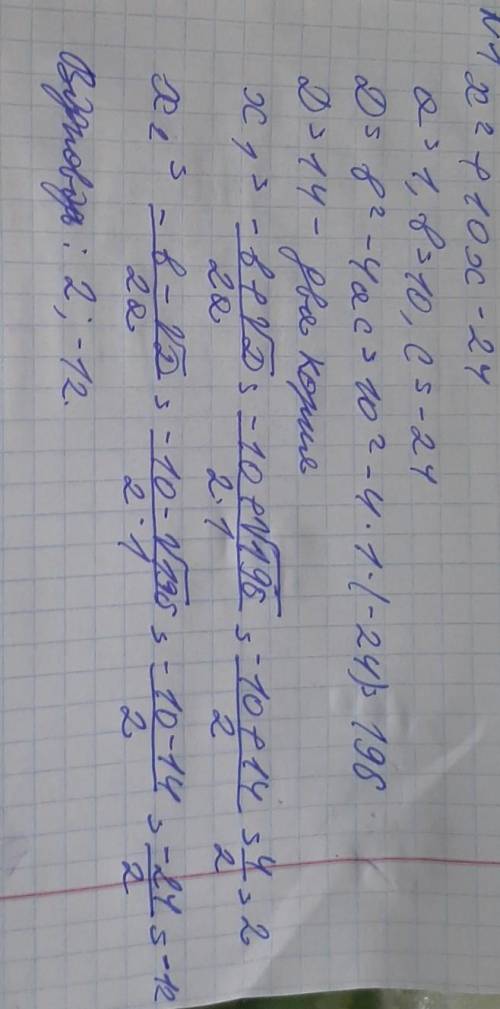 №1 x² + 10x - 24
a = 1, b = 10, c = -24
D = b² - 4ac = 10² - 4 · 1 · (-24) = 196
D = 14 - два корня
x₁ = -b + √D / 2a = -10 + √196 / 2 · 1 = -10 + 14 / 2 = 4 / 2 = 2
x₂ = -b - √D / 2a = -10 - √196 / 2 · 1 = -10 - 14 / 2 = -24 / 2 = -12
Відповідь: 2; -12.